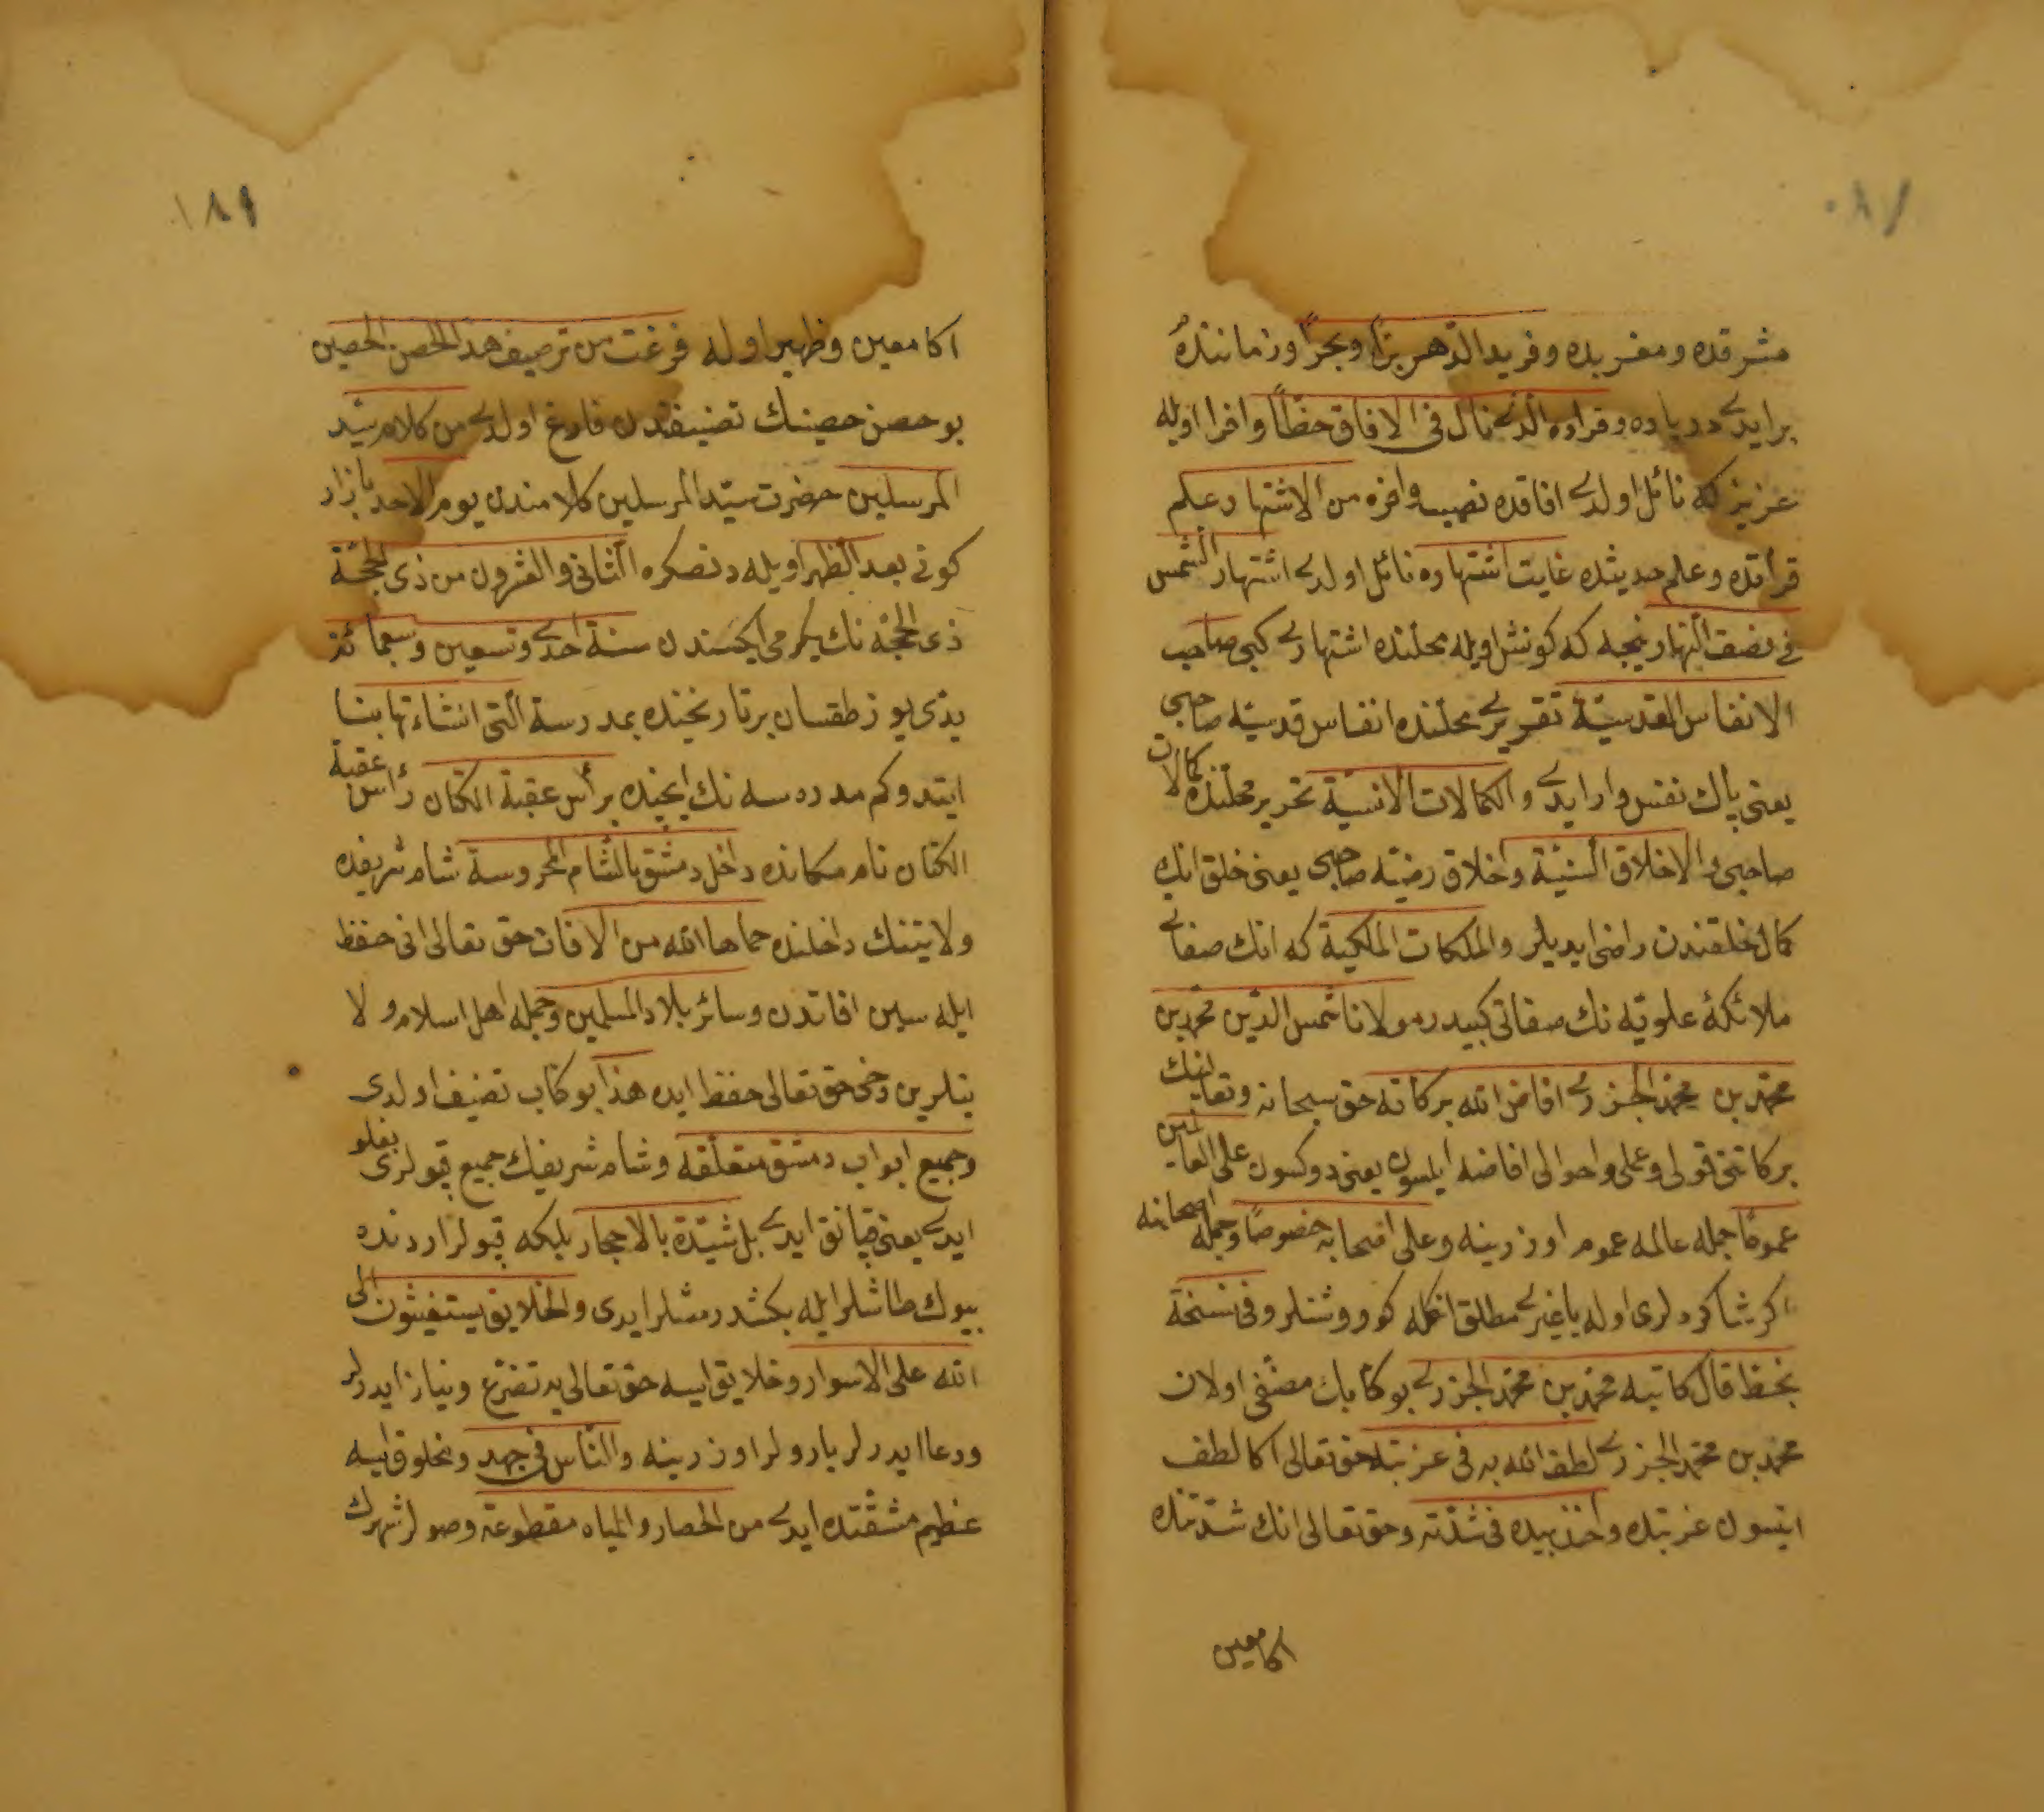 ١٨٠
مشرقده ومغربده وفريد الدّهر برًّا وبحرًا وزماننده
بر ايدى درياده وقراده الّذى نال فى الافاق حظًّا وافرا اويله
عزيز كه نائل اولدى افاقده نصيب وافره من الاشتهار علم
قرأتده وعلم حديثده غايت اشتهاره نائل اولدى اشتهار الشّمس
فى نصف النّهار نيجه كه كونش اويله محلنده اشتهارى كبى صاحب
الانفاس القدسيّة تقريرى محلنده انفاس قدسيّه صاحبى
يعنى پاك نفس وار ايدى والكمالات الانسيّة تحرير محلّنده كمالات
صاحبى والاخلاق السّنيّة واخلاق رضيّه صاحبى يعنى خلق انك
كمال خلقندن راضى ايديلر والملكات الملكية كه انك صفاتى
ملائكهٔ علويّه نك صفاتى كبيدر مولانا شمس الدّين محمّد بن
محمّد بن محمّد الجزرى افاض الله بركاته حق سبحانه وتعالى انك
بركاتنى قولى وعملى واحوالى افاضه ايلسون يعنى دوكسون على العالمين
عمومًا جمله عالمه عموم اوزرينه وعلى اصحابه خصوصًا وجمله اصحابنه
اكر شاكردلرى اوله يا غيرى مطلق انكله كوروشنلر وفى نسخة
بخطه قال كاتبه محمّد بن محمّد الجزرى بو كتابك مصنّفى اولان
محمّد بن محمّد الجزرى لطف الله به فى غربته حق تعالى اكا لطف
ايتسون غربتده واخذ بيده فى شدّته وحق تعالى انك شدّتنده
اكا معين
١٨١
اكا معين وظهير اوله فرغت من ترصيف هذا الحصن الحصين
بو حصن حصينك تصنيفندن فارغ اولدى من كلام سيّد
المرسلين حضرت سيّد المرسلين كلامندن يوم الاحد بازار
كونى بعد الظهر اويله دنصكره الثانى والعشرون من ذى الحجّة
ذى الحجّه نك يكرمى ايكسندن سنة احدى وتسعين وسبعمائة
يدى يوز طقسان بر تاريخنده بمدرسة الّتى انشاءتها بنا
ايتدوكم مدرسه نك ايچنده برأس عقبة الكتان رأس عقبة
الكتان نام مكانده داخل دمشق بالشّام المحروسة شام شريفده
ولايتنك داخلنده حماها الله من الافات حق تعالى انى حفظ
ايله سين افاتدن وسائر بلاد المسلمين وجمله اهل اسلام ولا
يتلرين دخى حق تعالى حفظ ايده هذا بو كتاب تصنيف اولدى
وجميع ابواب دمشق متعلّقه وشام شريفك جميع قپولرى بغلو
ايدى يعنى قپانق ايدى بل شيّدة بالاحجار بلكه قپولر اردنده
بيوك طاشلر ايله بكشدرمشلر ايدى والخلايق يستغيثون الى
الله على الاسوار وخلايق ايسه حق تعالى يه تضرّع ونياز ايدرلر
ودعا ايدرلر بارولر اوزرينه والنّاس فى جهد ومخلوق ايسه
عظيم مشقّتده ايدى من الحصار والمياه مقطوعة وصولر شهرك